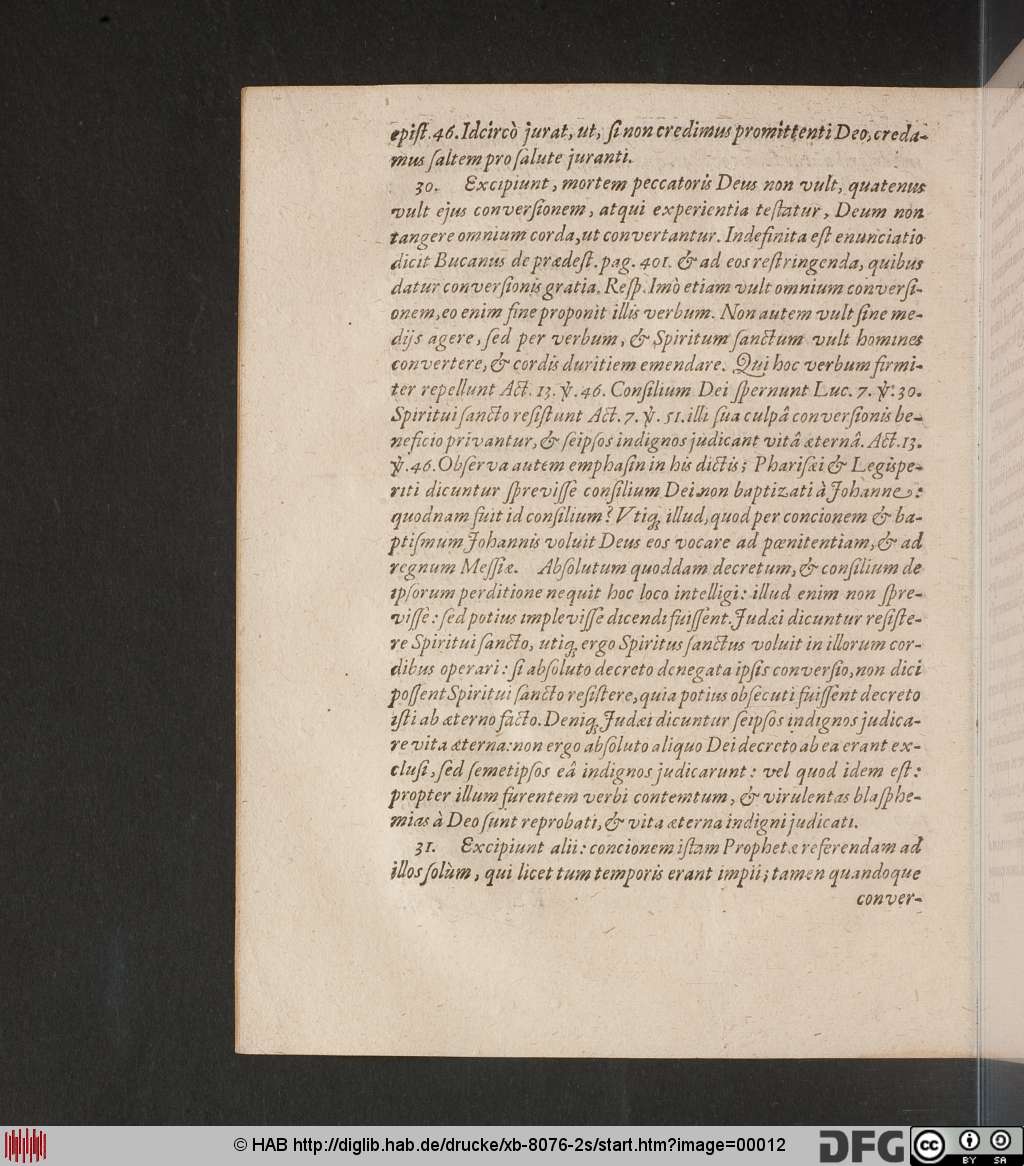 epiſt. 46. Idcircò jurat, ut, ſi non credimus promittenti Deo, creda-
mus ſaltem pro ſalute juranti.
30. Excipiunt, mortem peccatoris Deus non vult, quatenus
vult ejus converſionem, atqui experientia teſtatur, Deum non
tangere omnium corda, ut convertantur. Indefinita eſt enunciatio
dicit Bucanus de prædeſt. pag. 401. & ad eos reſtringenda, quibus
datur converſionis gratia. Reſp. Imò etiam vult omnium converſi-
onem, eo enim fine proponit illis verbum. Non autem vult ſine me-
dijs agere, ſed per verbum, & Spiritum ſanctum vult homines
convertere, & cordis duritiem emendare. Qui hoc verbum firmi-
ter repellunt Act. 13. ℣. 46. Conſilium Dei ſpernunt Luc. 7. ℣. 30.
Spiritui ſancto reſiſtunt Act. 7. ℣. 51. illi ſua culpâ converſionis be-
neficio privantur, & ſeipſos indignos judicant vitâ æternâ. Act. 13.
℣. 46. Obſerva autem emphaſin in his dictis; Phariſæi & Legispe-
riti dicuntur ſpreviſſe conſilium Dei non baptizati à Johanne:
quodnam fuit id conſilium? Utiq; illud, quod per concionem & ba-
ptiſmum Johannis voluit Deus eos vocare ad pœnitentiam, & ad
regnum Meſſiæ. Abſolutum quoddam decretum, & conſilium de
ipſorum perditione nequit hoc loco intelligi: illud enim non ſpre-
viſſe: ſed potius impleviſſe dicendi fuiſſent. Judæi dicuntur reſiſte-
re Spiritui ſancto, utiq; ergo Spiritus ſanctus voluit in illorum cor-
dibus operari: ſi abſoluto decreto denegata ipſis converſio, non dici
poſſent Spiritui ſancto reſiſtere, quia potius obſecuti fuiſſent decreto
iſti ab æterno facto. Deniq; Judæi dicuntur ſeipſos indignos judica-
re vita æterna: non ergo abſoluto aliquo Dei decreto ab ea erant ex-
cluſi, ſed ſemetipſos eâ indignos judicarunt: vel quod idem eſt:
propter illum furentem verbi contemtum, & virulentas blaſphe-
mias à Deo ſunt reprobati, & vita æterna indigni judicati.
31. Excipiunt alii: concionem iſtam Prophetæ referendam ad
illos ſolùm, qui licet tum temporis erant impii; tamen quandoque
conver-
© HAB http://diglib.hab.de/drucke/xb-8076-2s/start.htm?image=00012
DFG
cc
BY SA